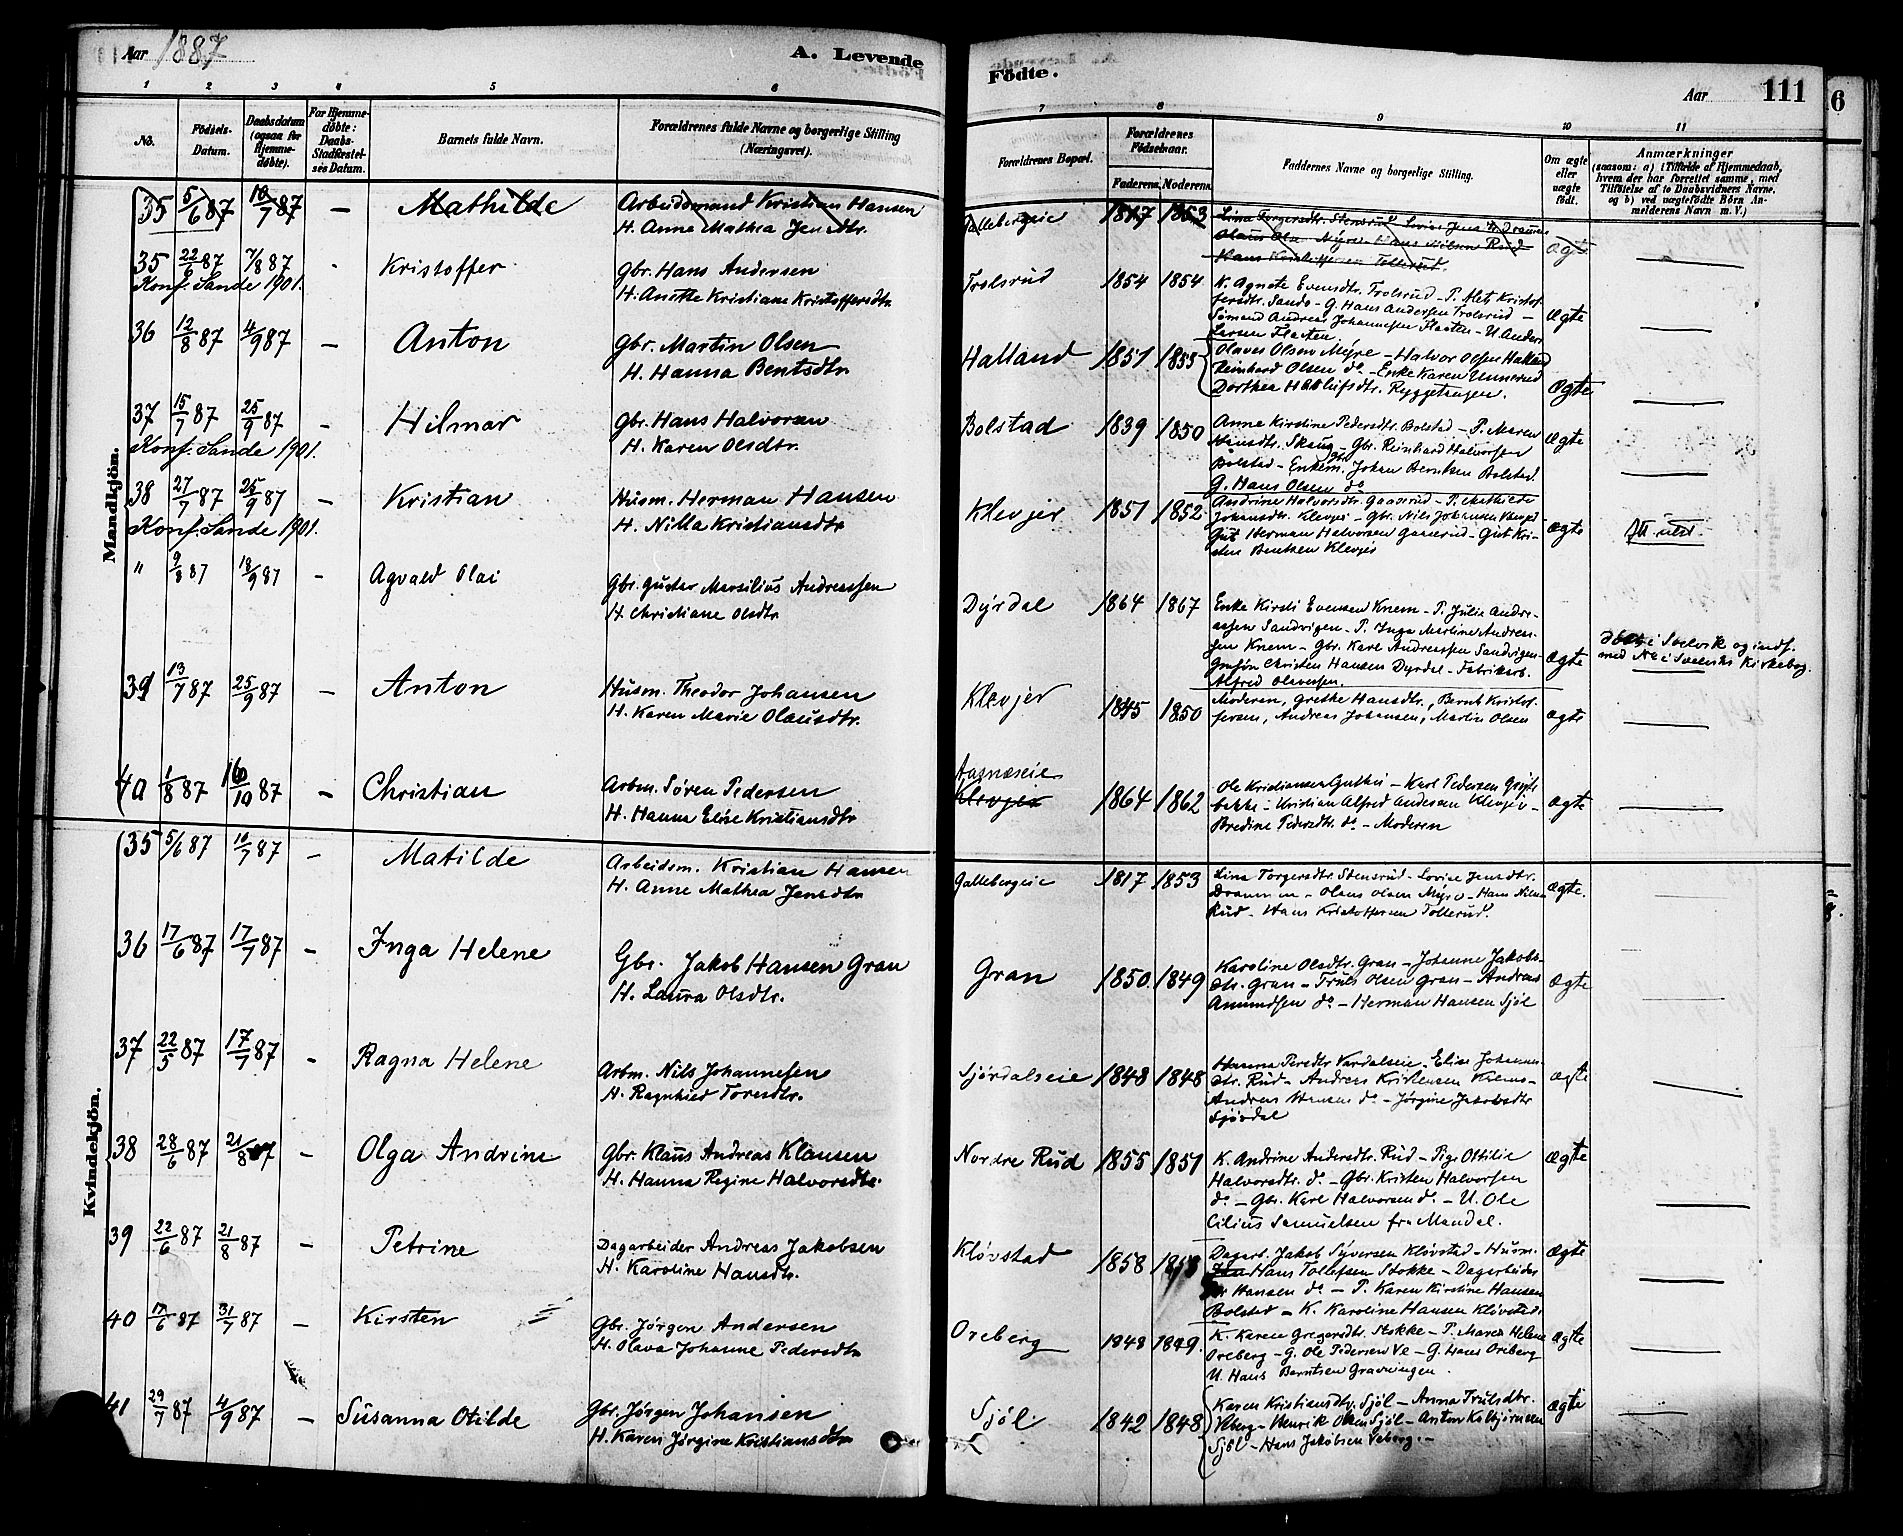 Aar 1887
A. Levende
Födte.
Aar 111
6
1 2 3 4 5 6
7 8 9 10 11
No.
Födsels-Datum.
Daabsdatum (ogsaa for Hjemmedøbte).
For Hjemmedøbte: Daabs-Stadfæstelses Datum.
Barnets fulde Navn.
Forældrenes fulde Navne og borgerlige Stilling (Næringsvei).
Forældrenes Bopæl.
Forældrenes Fødselsaar.
Faderens. Moderens.
Faddernes Navne og borgerlige Stilling.
Om ægte eller uægte født.
Anmærkninger
(saasom: a) i Tilfælde af Hjemmedaab, hvem der har forrettet samme, med Tilföielse af to Daabsvidners Navne, og b) ved uægtefødte Börn Anmelderens Navn m. V.)
Mandkjön.
35 5/6 87 10/7 87 – Mathilde Arbeidsmand Kristian Hansen
H. Anne Mathea Jensdtr.
Gallebergeie 1817 1853 Lina Torgersdtr. Stensrud Lovise Jensdtr Drammen
Olaus Ols. Myre – Hans Nilsen Rud
Hans Kristoffersen Tollerud.
ægte
35 22/6 87 7/8 87 - Kristoffer Gbr. Hans Andersen
Konf. Sande 1901.
H. Anette Kristiane Kristoffersdtr.
Trolsrud 1854 1854 K. Agnete Evensdtr. Trolsrud – P. Alet Kristoffersdtr. Sande – G. Hans Andersen Trolsrud –
Sømand Andreas Johannesen Flaaten – U. Anders
Larsen Flaaten
ægte
36 12/8 87 4/9 87 – Anton Gbr. Martin Olsen
H. Hanna Bentsdtr
Halland 1851 1855 Olaves Olsen Myre – Halvor Olsen Halland
Reinhard Olsen do. – Enke Karen Unnerud
Dorthea Hadlufsdtr. Ryggetangen.
ægte
37 15/7 87 25/9 87 - Hilmar Gbr. Hans Halvorsen
Konf. Sande 1901.
H. Karen Olsdtr.
Bolstad 1839 1850 Anne Kirstine Pedersdtr. Bolstad – P. Maren
Hansdtr. Skaug – Gbr. Reinhard Halvorsen
Bolstad – Enkem. Johan Berntsen Bolstad.
G. Hans Olsen do
ægte
38 27/7 87 25/9 87 – Kristian Husm. Herman Hansen
Konf. Sande 1901.
H. Nilla Kristiansdtr
Klevjer 1851 1852 Andrine Halvorsdtr. Gaaserud – P. Mathilde
Johansdtr. Klevjer – Gbr. Nils Johansen Klevjer
Gut Herman Halvorsen Gaaserud – Gut Kristen Bentsen Klevjer
ægte
" 9/8 87 18/9 87 - Agvald Olai Gbr. Gustav Marsilius Andreassen
H. Christiane Olsdtr
Dyrdal 1864 1867 Enke Kirsti Evensen Knem – P. Julie Andreassen Sandvigen – P. Inga Martine Andreassen Knem – Gbr. Karl Andreassen Sandvigen –
Christen Hansen Dyrdal – Fabrikarb.
Alfred Olavesen.
ægte
døbt i Svelvik og indf.
med No i Svelviks Kirkebog
39 13/7 87 25/9 87 – Anton Husm. Theodor Johansen
H. Karen Marie Olausdtr.
Klevjer 1845 1850 Moderen, Grethe Hansdtr., Bernt Kristoffersen, Andreas Johansen, Martin Olsen
ægte
40 1/8 87 16/10 87 – Christian Arbm. Søren Pedersen
H. Hanna Elise Kristiansdtr
Aasnæseie
Klevjer 1864 1862 Ole Kristiansen – Karl Pedersen
– Kristian Alfred Andersen Klevjer –
Bredine Pedersdtr. do – Moderen
ægte
Kvindekjön.
35 5/6 87 10/7 87 – Matilde Arbeidsm. Kristian Hansen
H. Anne Mathea Jensdtr
Gallebergeie 1817 1853 Lina Torgersdtr. Stensrud – Lovise Jensdtr.
Drammen – Olaus Olsen Myre – Hans Nilsen
Rud – Hans Kristoffersen Tollerud.
ægte.
36 17/6 87 17/7 87 – Inga Helene Gbr. Jakob Hansen Gran
H. Laura Olsdtr.
Gran 1850 1849 Karoline Olsdtr. Gran – Johanne Jakobsdtr. Gran – Truls Olsen Gran – Andreas
Amundsen do – Herman Hansen Sjöl
ægte
37 22/5 87 17/7 87 – Ragna Helene Arbm. Nils Johannesen
H. Ragnhild Toresdtr.
Sjördalseie 1848 1848 Hanna Persdtr Vardalseie, Elise Johannesdtr. Rud – Andreas Kristensen Knem –
Andreas Hansen do – Jørgine Jakobsdtr
Sjördal
ægte
38 28/6 87 21/8 87 – Olga Andrine Gbr. Klaus Andreas Klausen
H. Hanna Regine Halvorsdtr.
Nordre Rud 1855 1851 K. Andrine Andersdtr. Rud – Pige Ottilie
Halvorsdtr. do – Gbr. Kristen Halvorsen
do – Gbr. Karl Halvorsen do – U. Ole
Cilius Samuelsen fra Mandal.
ægte
39 22/6 87 21/8 87 – Petrine Dagarbeider Andreas Jakobsen
H. Karoline Hansdtr.
Kløvstad 1858 1858 Dagarb. Jakob Syversen Kløvstad – Husm.
Hans Tollefsen Stokke – Dagarbeider
Hansen do – P. Karen Kirstine Hansen
Bolstad – K. Karoline Hansen Kløvstad.
ægte
40 17/6 87 31/7 87 – Kirsten Gbr. Jørgen Andersen
H. Olava Johanne Pedersdtr
Oreberg 1848 1849. K. Karen Gregersdtr. Stokke – P. Maren Helene
Oreberg – G. Ole Pedersen Ve – G. Hans Oreberg
U. Hans Berntsen Gravningen.
ægte
41 29/7 87 4/9 87 – Susanna Otilde Gbr. Jörgen Johansen
H. Karen Jørgine Kristiansdtr
Sjöl. 1842 1848 Karen Kristiansdtr. Sjöl – Anna Trulsdtr.
Veberg – Henrik Olsen Sjöl – Anton Kolbjörnsen
Sjöl – Hans Jakobsen Veberg. –
ægte